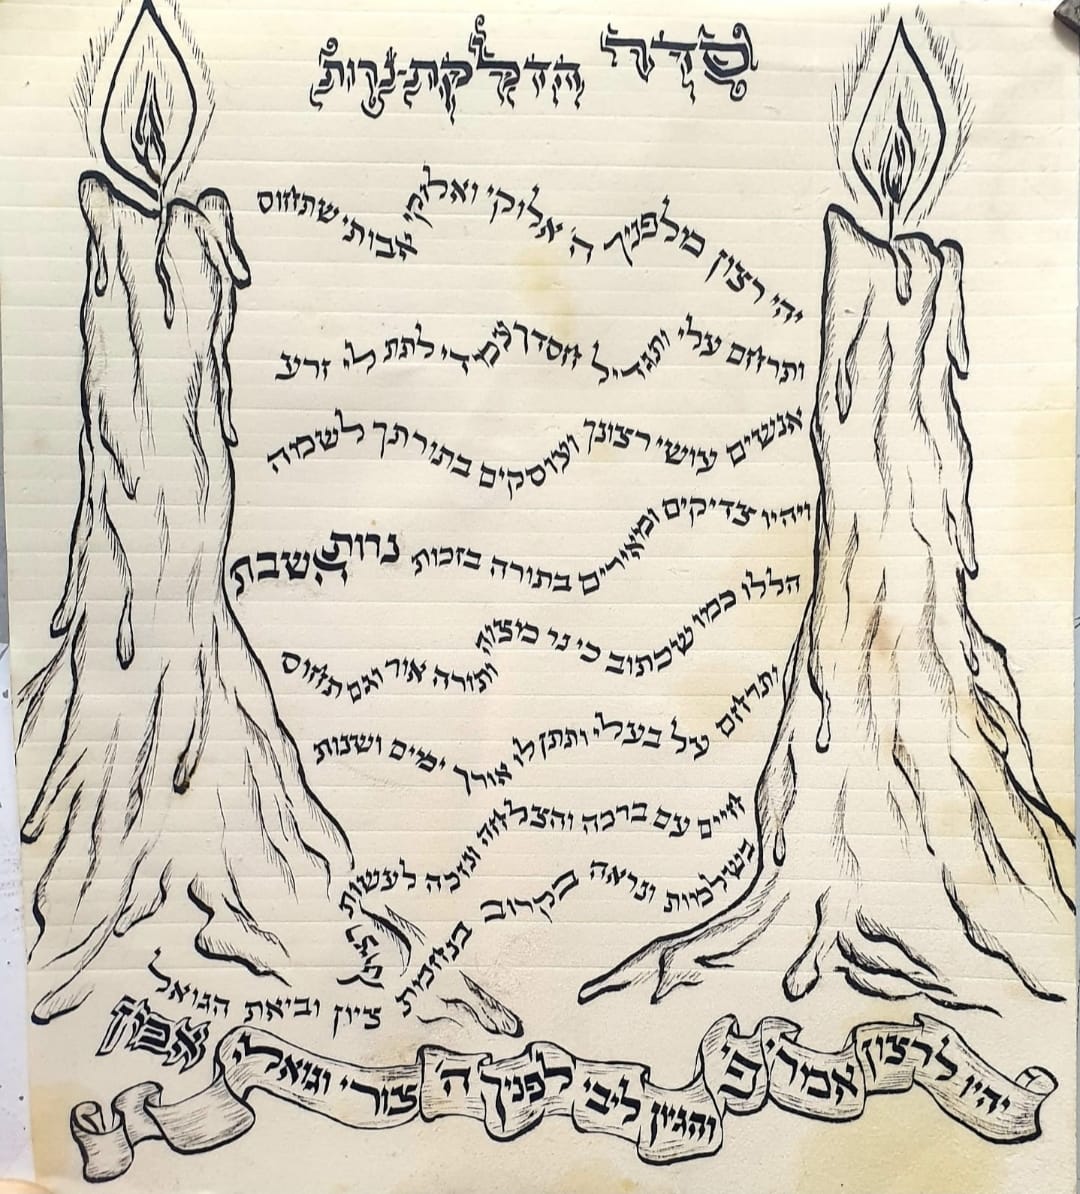 סדר הדלקת-נרות
יהי רצון מלפניך ה' אלוקי ואלוקי אבותי שתחוס
ותרחם עלי ותגדיל חסדך עמדי לתת לי זרע
אנשים עושי רצונך ועוסקים בתורתך לשמה
ויהיו צדיקים ומאירים בתורה בזכות נרות השבת
הללו כמו שכתוב כי נר מצוה ותורה אור וגם תחוס
ותרחם על בעלי ותתן לו אורך ימים ושנות
חיים עם ברכה והצלחה ונזכה לעשות
בשלמות ונראה בקרוב בנחמות
ציון וביאת הגואל
אמן
יהיו לרצון אמרי פי והגיון ליבי לפניך ה' צורי וגואלי